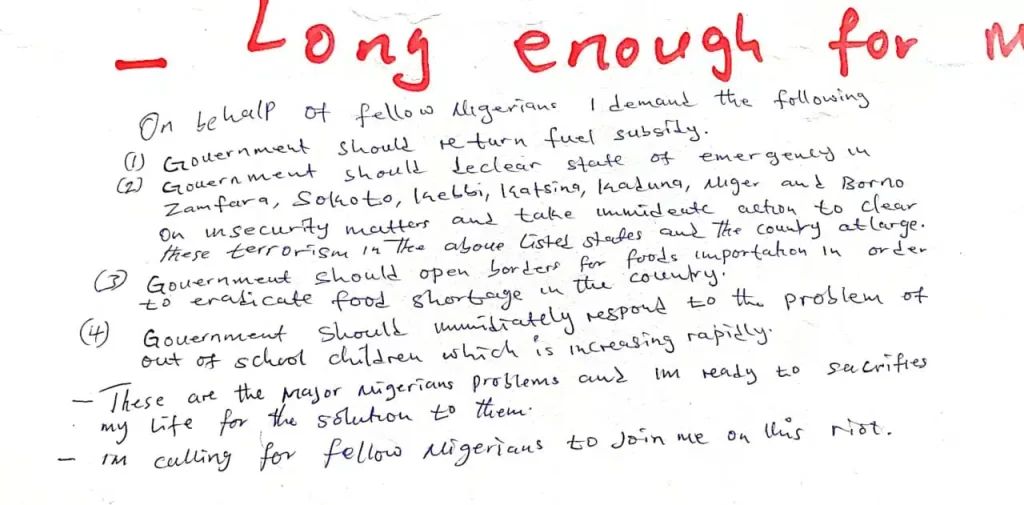 - Long enough for
On behalf of fellow Nigerians I demand the following
(1) Government should return fuel subsidy.
(2) Government should declear state of emergency in
Zamfara, Sokoto, Kebbi, Katsina, Kaduna, Niger and Borno
on insecurity matters and take immideate action to clear
these terrorism in the above listed states and the county at large.
(3) Government should open borders for foods importation in order
to eradicate food shortage in the country.
(4) Government should immidiately respond to the problem of
out of school children which is increasing rapidly.
- These are the major Nigerians problems and im ready to sacrifies
my life for the solution to them.
- im calling for fellow Nigerians to Join me on this riot.